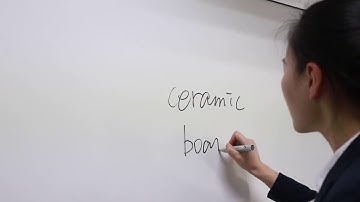 ceramic
boar